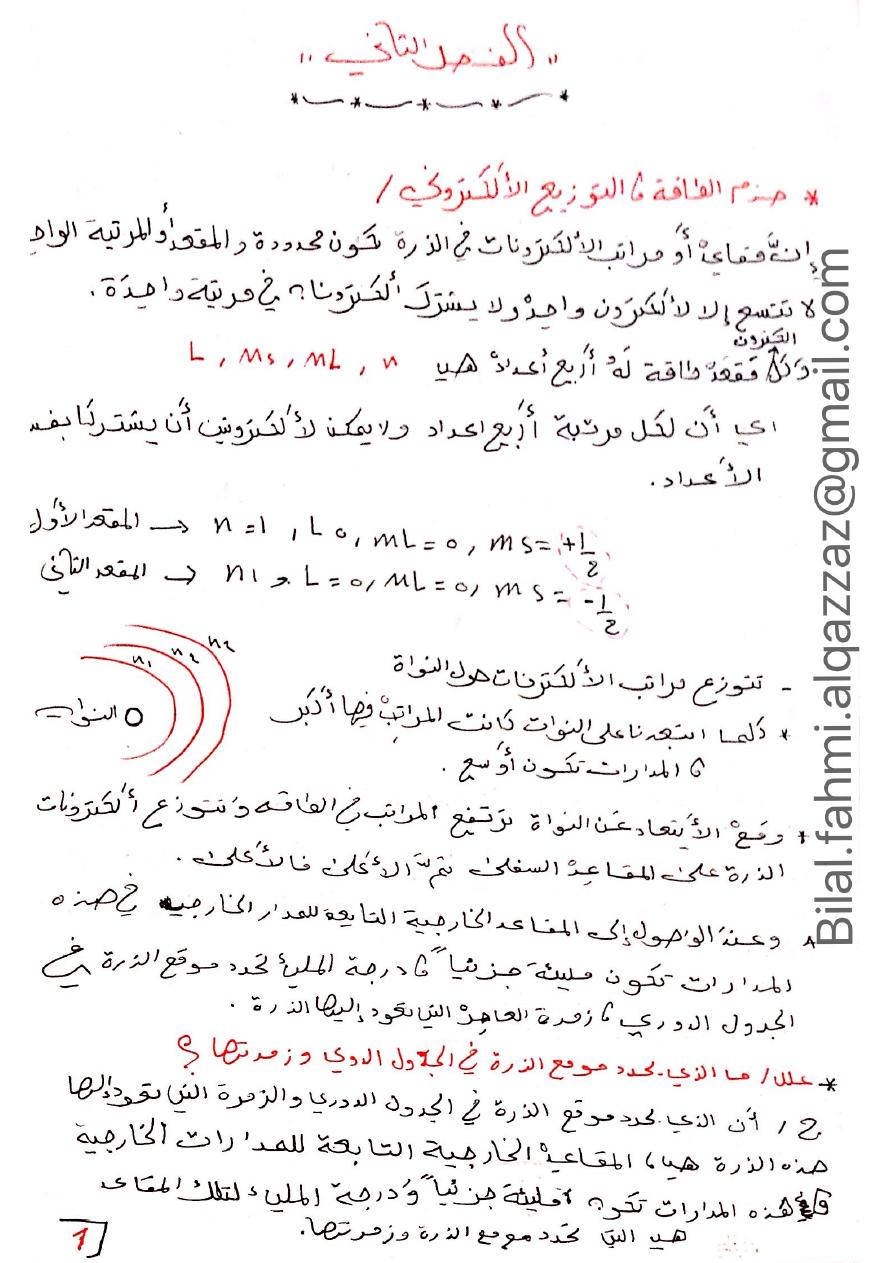 "الفصل الثاني"
* حزم الطاقة و التوزيع الألكتروني /
إنَّ مقاعد أو مراتب الألكترونات في الذرة تكون محدودة والمقعد أو المرتبة الواحد
لا تتسع إلا لألكترون واحد ولا يشترك ألكترونان في مرتبة واحدة.
الكترون
ولكل مقعد طاقة له أربع أعداد هي L , Ms , mL , n
اي أن لكل مرتبة أربع اعداد ولا يمكن لألكترونين أن يشتركا بنفس
الأعداد.
المقعد الأول → n=1 , L 0, mL=0, ms=+1/2
المقعد الثاني → n1 , L=0, mL=0, ms=-1/2
- تتوزع مراتب الألكترونات حول النواة
n1 n2 n2
* كلما ابتعدنا على النوات كانت المراتب فيها أكبر
النوات
و المدارات تكون أوسع.
* ومع الأبتعاد عن النواة ترتفع المراتب في الطاقه وتتوزع ألكترونات
الذرة على المقاعد السفلى ثم الأعلى فالأعلى.
* وعند الوصول إلى المقاعد الخارجية التابعة للمدار الخارجيه في هذه
المدارات تكون مليئة جزئياً و درجة المليء تحدد موقع الذرة في
الجدول الدوري و زمرة العناصر التي تعود إليها الذرة.
* علل/ ما الذي يحدد موقع الذرة في الجدول الدوي وزمرتها ؟
ج / أن الذي يحدد موقع الذرة في الجدول الدوري والزمرة التي تعود إليها
هذه الذرة هي المقاعد الخارجية التابعة للمدارات الخارجية
هذه المدارات تكون مليئة جزئياً ودرجة المليء لتلك المقاعد
هي التي تحدد موقع الذرة وزمرتها.
1
Bilal.fahmi.alqazzaz@gmail.com